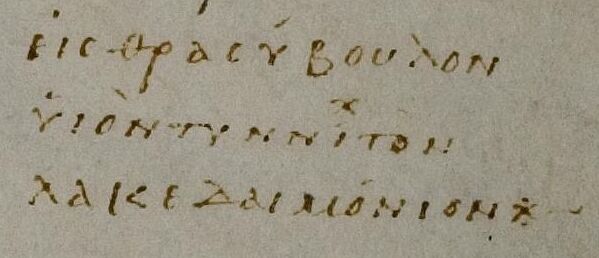 εἰς θρασύβουλον
ὑιὸν τυννίχ τὸν
λακεδαιμόνιον